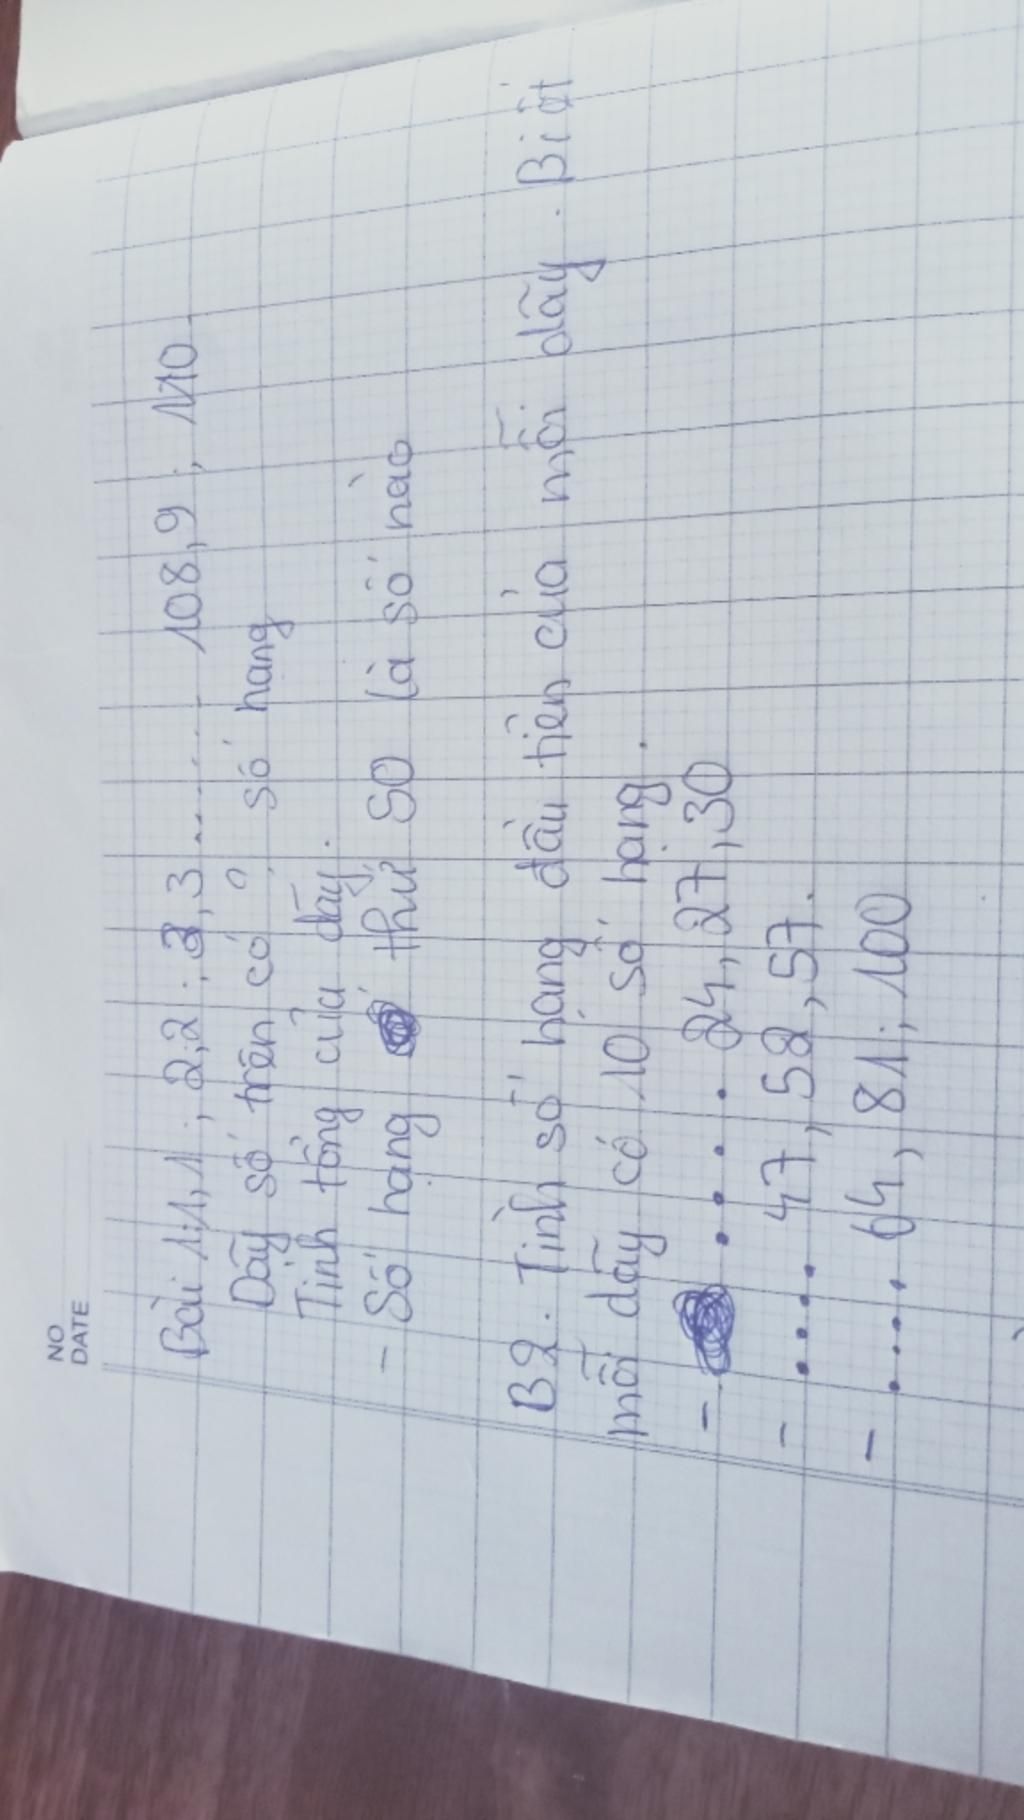 NO
DATE
Bài 1: 1,1 ; 2,2 ; 3,3 ....... 108,9 ; 110
Dãy số trên có ? số hạng
Tính tổng của dãy.
- Số hạng thứ 50 là số nào
B2. Tình số hạng đầu tiên của mỗi dãy. Biết
mỗi dãy có 10 số hạng.
- .... 24, 27, 30
- .... 47, 52, 57.
- .... 64, 81, 100